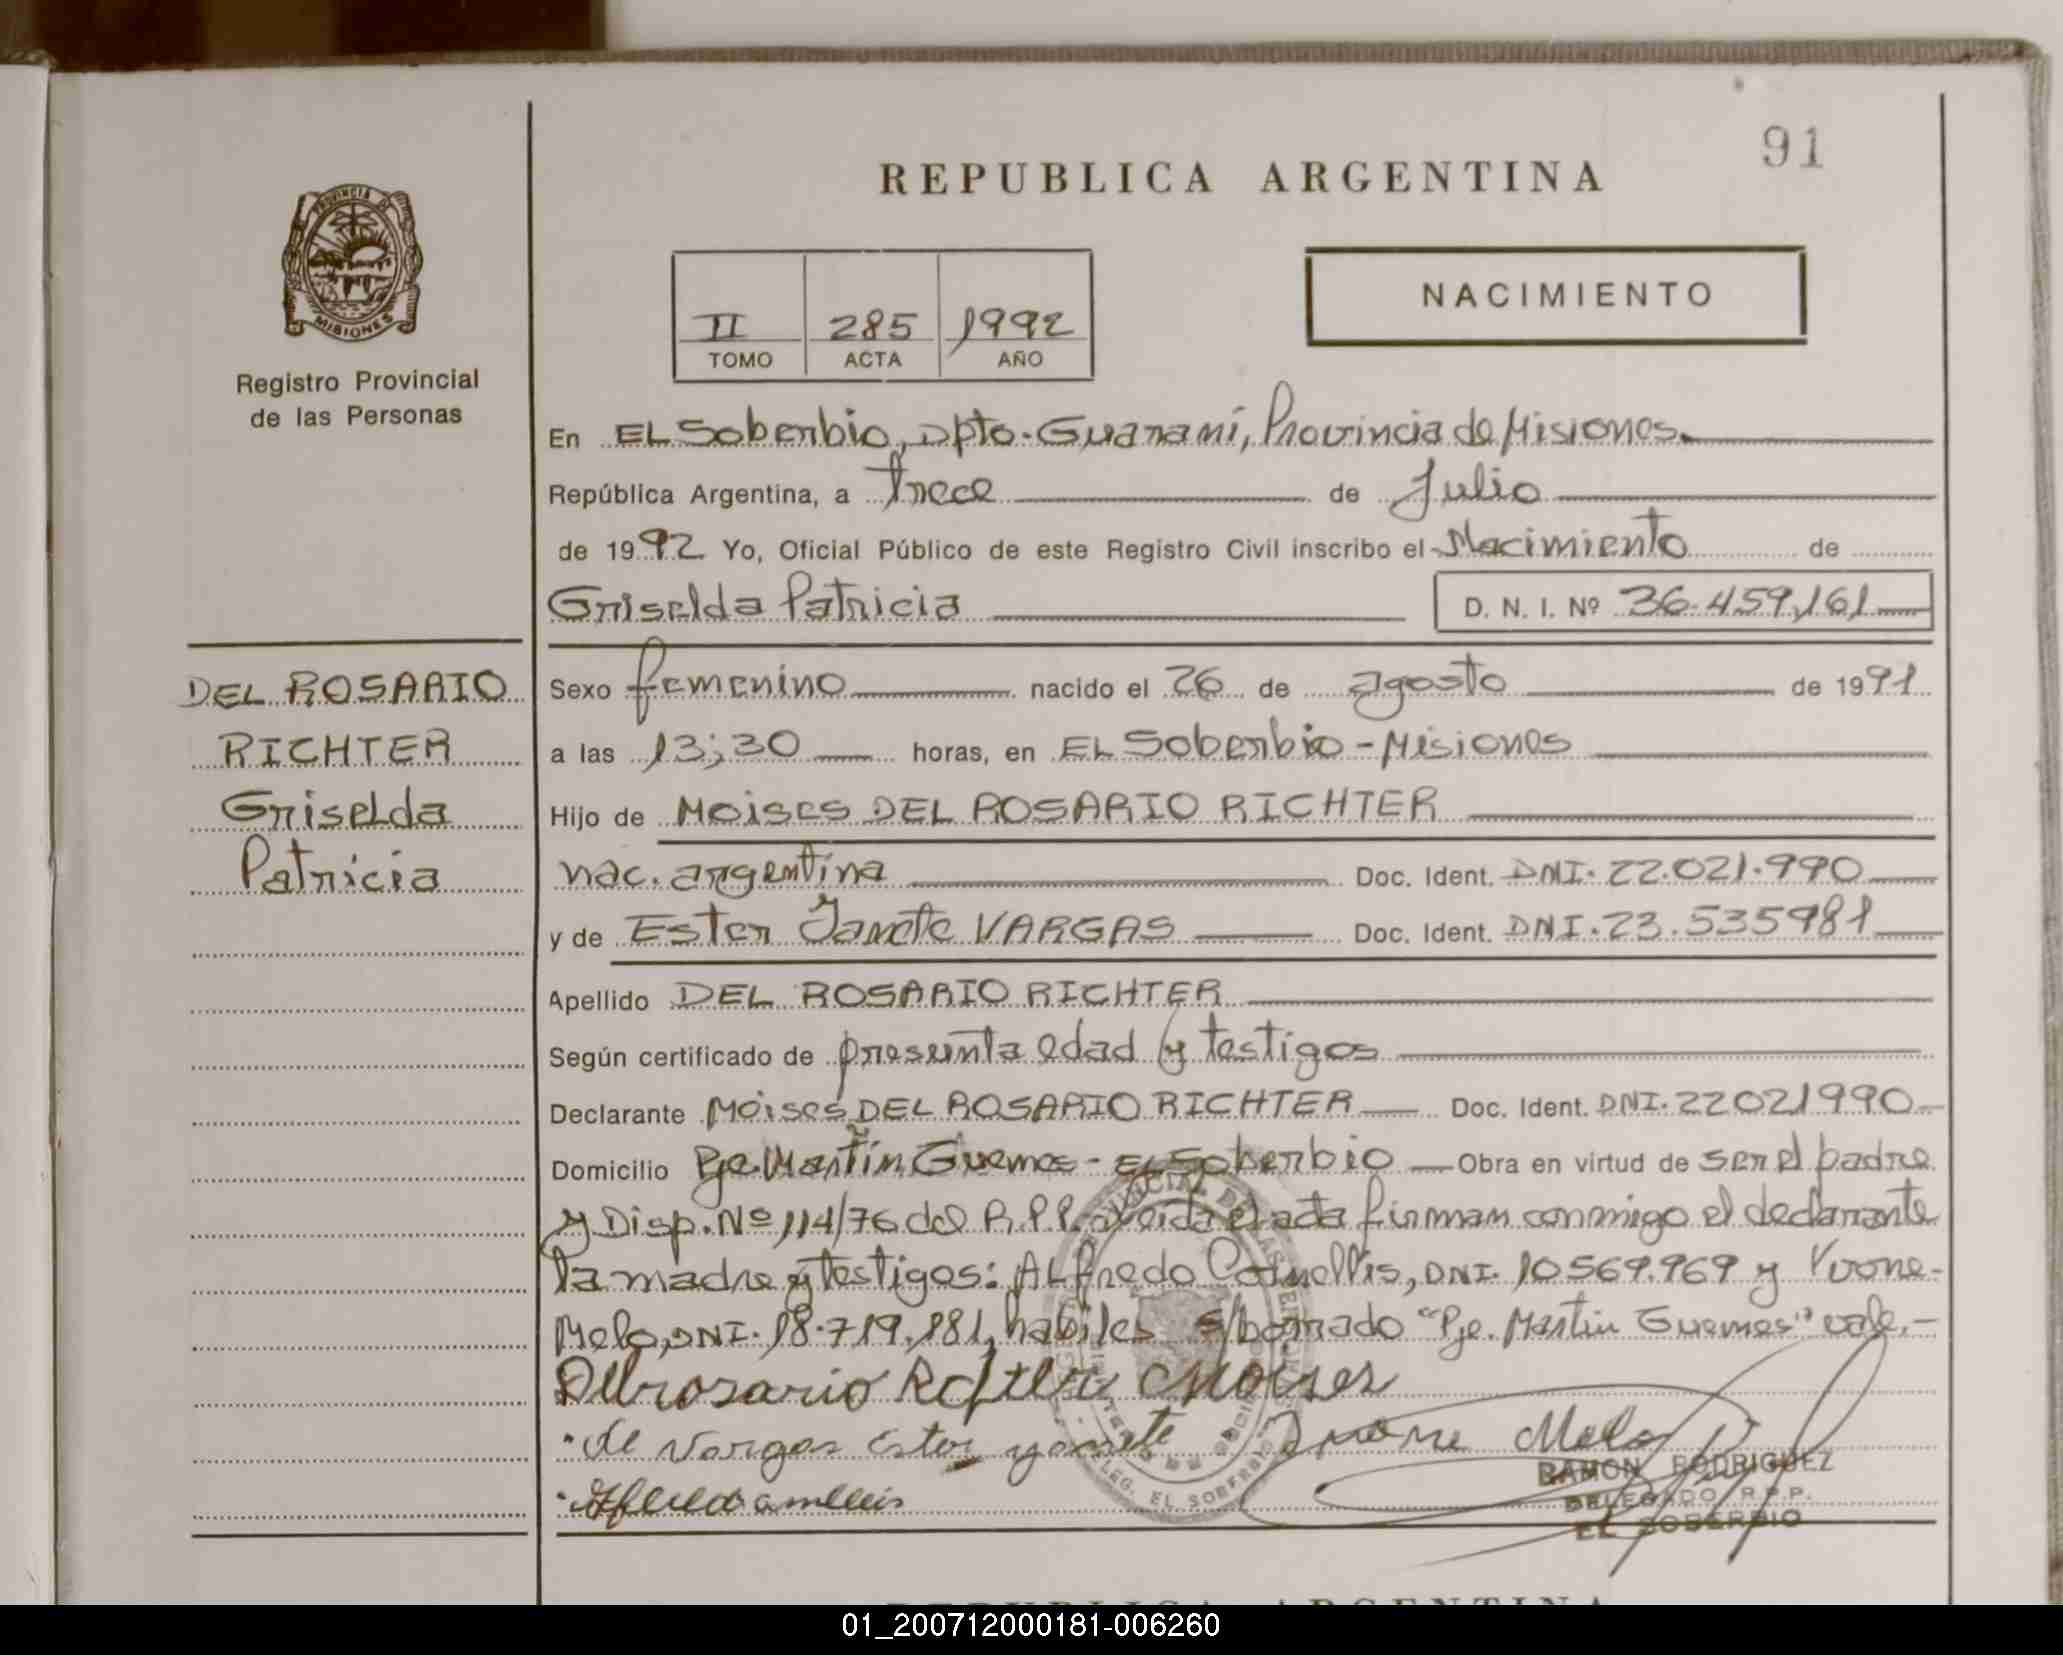 91
REPUBLICA ARGENTINA
PROVINCIA DE
MISIONES
Registro Provincial
de las Personas
II 285 1992
TOMO ACTA AÑO
NACIMIENTO
En EL Soberbio, Dpto. Guaraní, Provincia de Misiones.
República Argentina, a trece de Julio
de 1992 Yo, Oficial Público de este Registro Civil inscribo el Nacimiento de
Griselda Patricia D. N. I. Nº 36.459.161
DEL ROSARIO
RICHTER
Griselda
Patricia
Sexo femenino nacido el 26 de agosto de 1991
a las 13;30 horas, en EL Soberbio - Misiones
Hijo de MOISES DEL ROSARIO RICHTER
nac. argentina Doc. Ident. DNI. 22.021.990
y de Ester Janete VARGAS Doc. Ident. DNI. 23.535981
Apellido DEL ROSARIO RICHTER
Según certificado de presunta edad y testigos
Declarante Moises DEL ROSARIO RICHTER Doc. Ident. DNI. 22021990
Domicilio Pje. Martin Guemes - EL Soberbio Obra en virtud de ser el padre
y Disp. Nº 114/76 del R.P.P. Leida el acta firman conmigo el declarante
la madre y testigos: Alfredo DNI. 10569.969 y Yvone
Melo, DNI. 18.719.181, habiles. S/borrado "Pje. Martin Guemes" vale.-
Delrosario Moises
de Vargas Ester yanete Melo
RAMON RODRIGUEZ
DELEGADO R.P.P.
EL SOBERBIO
DELEG. EL SOBERBIO
REPUBLICA ARGENTINA
01_200712000181-006260